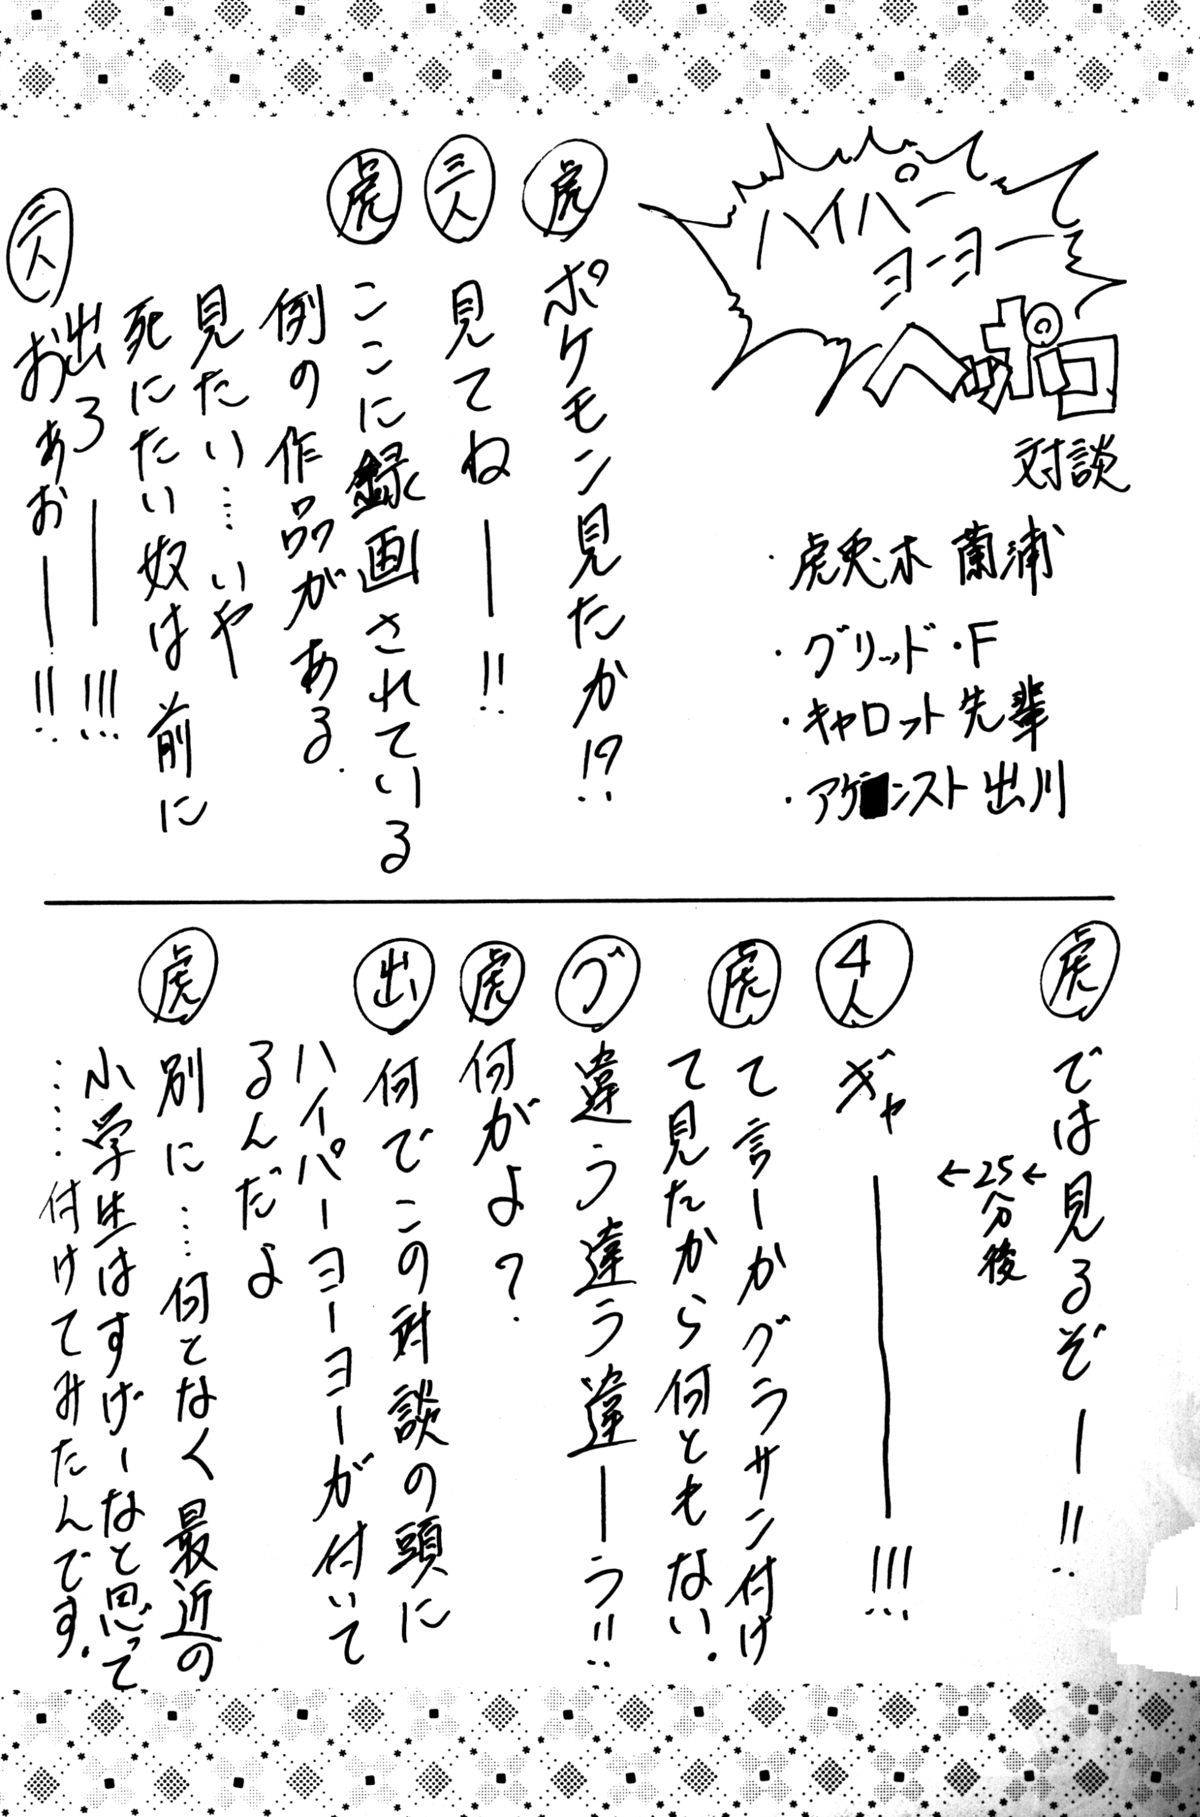 ハイパー
ヨーヨー
ヘッポコ
対談
・虎兎木 蘭浦
・グリッド・F
・キャロット先輩
・アゲ ンスト出川
虎 ポケモン見たか!?
三人 見てねーーー!!
虎 ここに録画されている
例の作品がある.
見たい…いや
死にたい奴は前に
出ろーーー!!!
三人 おぁおーーー!!
虎 では見るぞーー!!
←25分後←
4人 ギャーーーーー!!!
虎 て言ーかグラサン付け
て見たから何ともない.
グ 違う違う違ーーう!!
虎 何がよ?
出 何でこの対談の頭に
ハイパーヨーヨーが付いて
るんだよ
虎 別に……何となく最近の
小学生はすげーなと思って
……付けてみたんです.